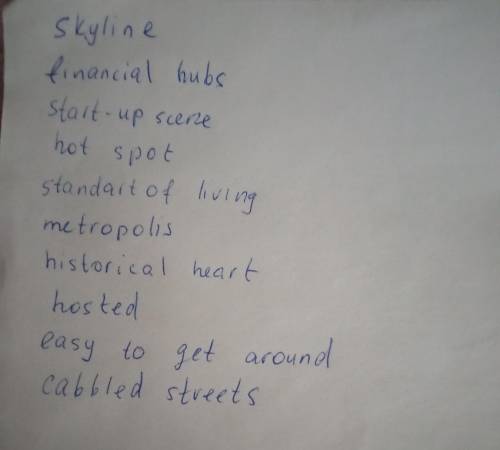 skyline
financial hubs
start-up scene
hot spot
standart of living
metropolis
historical heart
hosted
easy to get around
cabbled streets